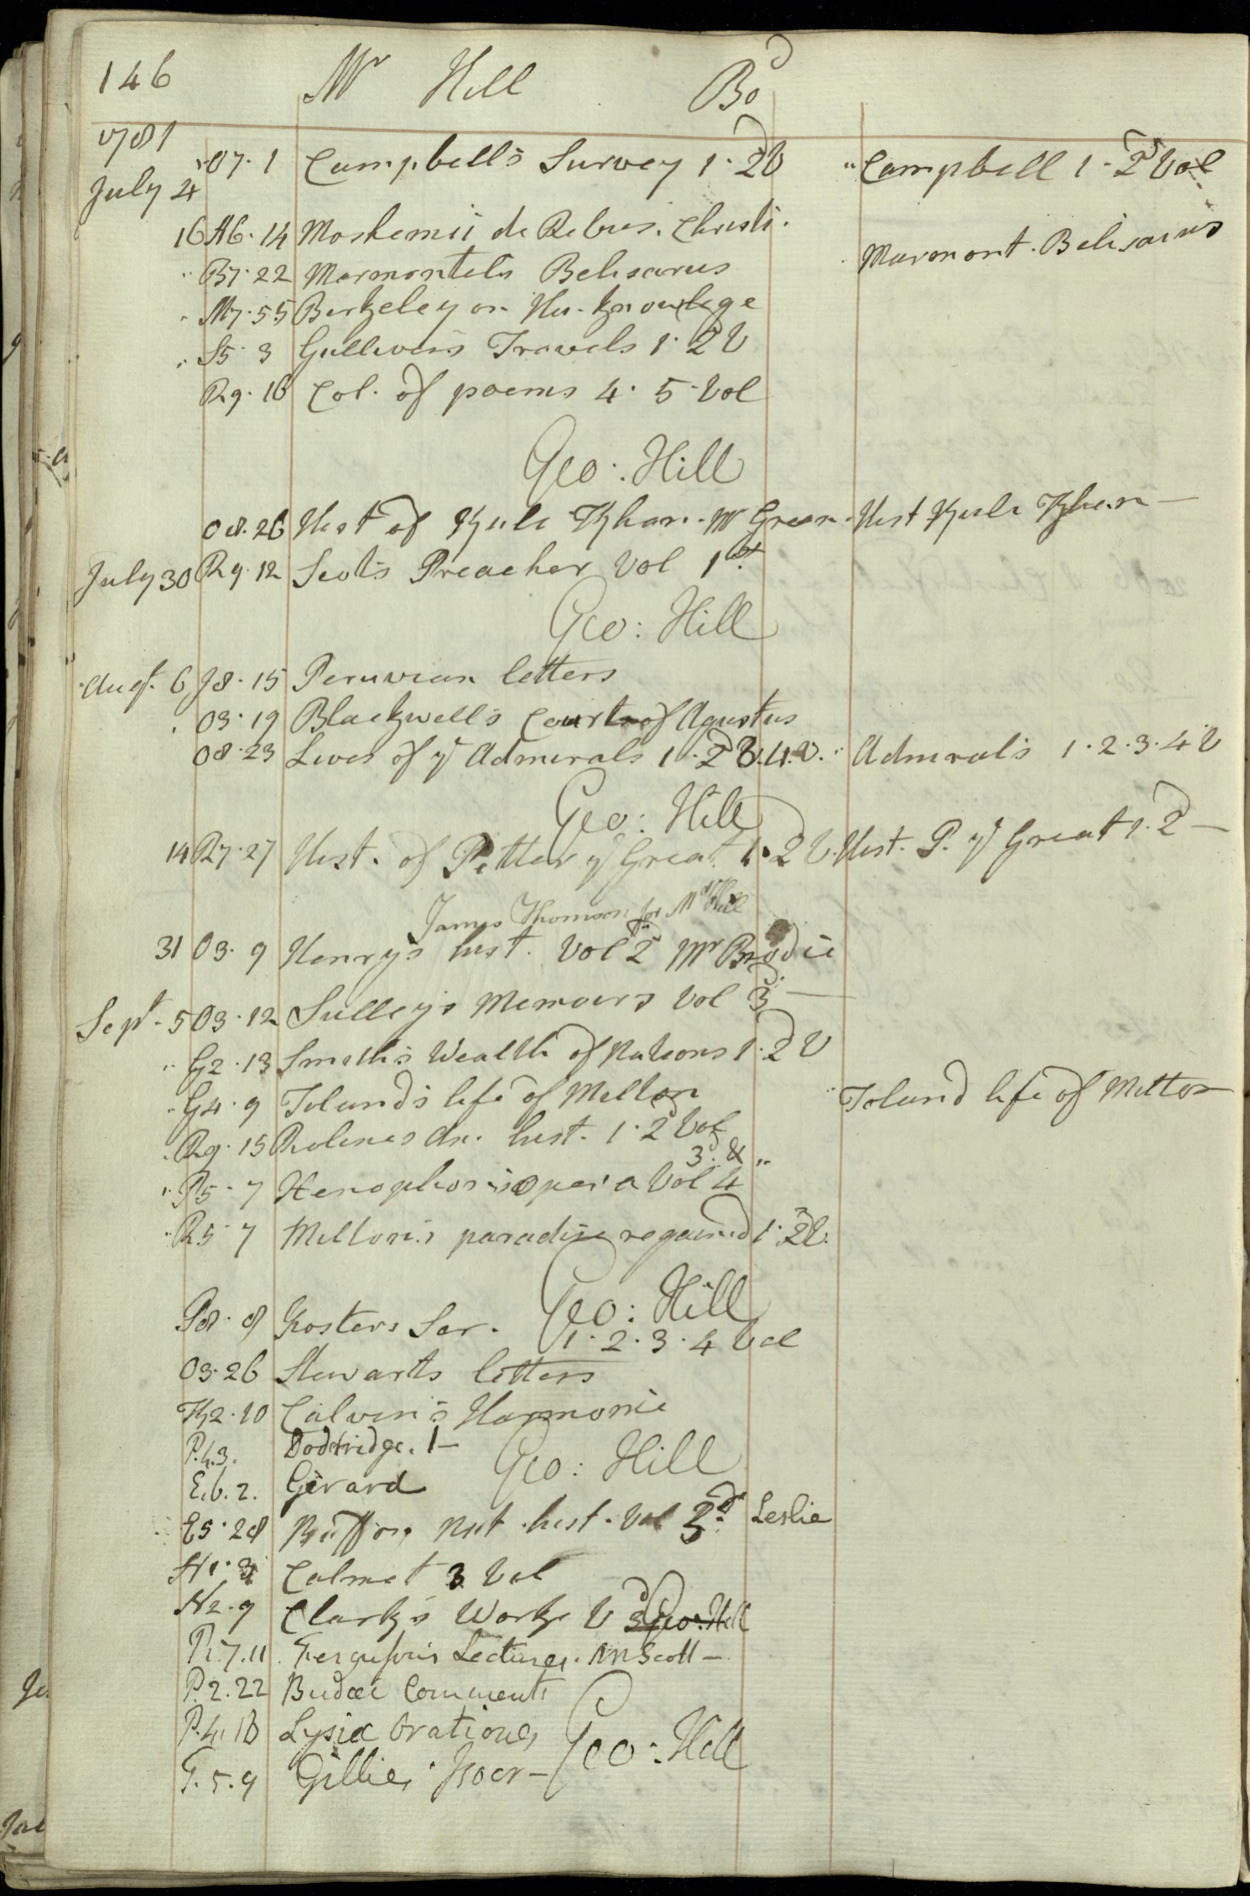 146 Mr Hill Bo
1781
July 4 O7.1 Campbell's Survey 1.2d V Campbell 1.2d Vol
16 A6.14 Moshemii de Rebus. Christi.
B7.22 Marmontels Belisarus Marmont. Belisarius
M7.55 Berkeley on Hu. knowlege
S5.3 Gullivers Travels 1.2 V
R9.16 Col. of poems 4.5 Vol
Geo: Hill
O8.26 Hist of Kuli Khan. Mr Green Hist Kuli Khan
July 30 R9.12 Scots Preacher Vol 1st
Geo: Hill
Augt. 6 J8.15 Peruvian letters
O3.19 Blackwell's Court of Agustus
O8.23 Lives of ye Admirals 1.2d V.4.V. Admirals 1.2.3.4 V
Geo: Hill
14 R7.27 Hist. of Petter ye Great 1.2 V. Hist. P. ye Great 1.2d
James Thomson for Mr Hill
31 O3.9 Henry's hist. Vol 2d Mr Brodie
Sept. 5 O3.12 Sulley's Memoirs Vol 3d
G2.13 Smith's Wealth of Nations 1.2d V
G4.9 Toland's life of Milton Toland life of Milton
R9.15 Rolines An. hist. 1.2 Vol
3d. &
P5.7 Xenophon's opera Vol 4
R5.7 Milton's paradise regained 1.2d V.
Geo: Hill
P8.8 Fosters Ser. 1.2.3.4 Vol
O3.26 Stewarts letters
K2.10 Calvin's Harmonie
P.4.3. Doddridge. 1
Geo: Hill
E.6.2. Gerard
E5.28 Buffon nat. hist. Vol 3d. Leslie
H1.3 Calmet 3 Vol
N2.9 Clark's Works V 3d Geo: Hill
P.7.11 Ferguson's Lectures. Mr Scott
P.2.22 Budæi Comments
P.4.18 Lysiæ Orationes
Geo: Hill
T.5.9 Gillies' Isocr